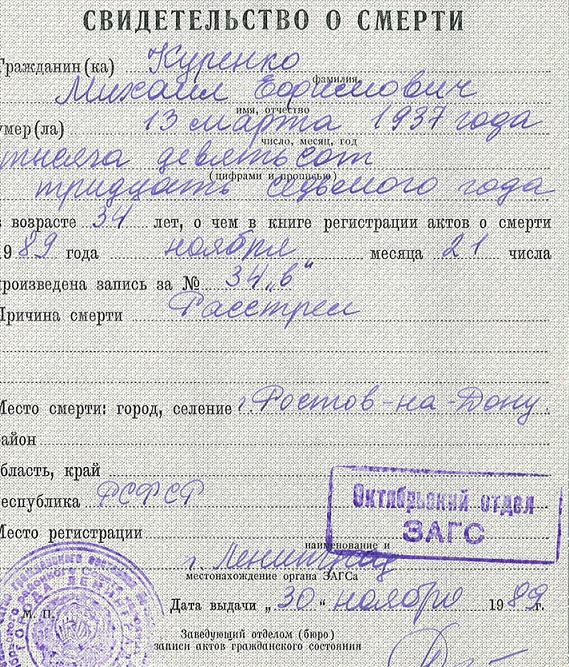 СВИДЕТЕЛЬСТВО О СМЕРТИ
Гражданин(ка) Куренко
фамилия
Михаил Ефимович
имя, отчество
умер(ла) 13 марта 1937 года
число, месяц, год
тысяча девятьсот
(цифрами и прописью)
тридцать седьмого года
в возрасте 34 лет, о чем в книге регистрации актов о смерти
1989 года ноября месяца 21 числа
произведена запись за № 34 „в“
Причина смерти Расстрел
Место смерти: город, селение г. Ростов-на-Дону
район
область, край
республика РСФСР
Октябрьский отдел
ЗАГС
Место регистрации
наименование и
г. Ленинград
местонахождение органа ЗАГСа
Дата выдачи „30“ ноября 1989 г.
М. П.
Заведующий отделом (бюро)
записи актов гражданского состояния